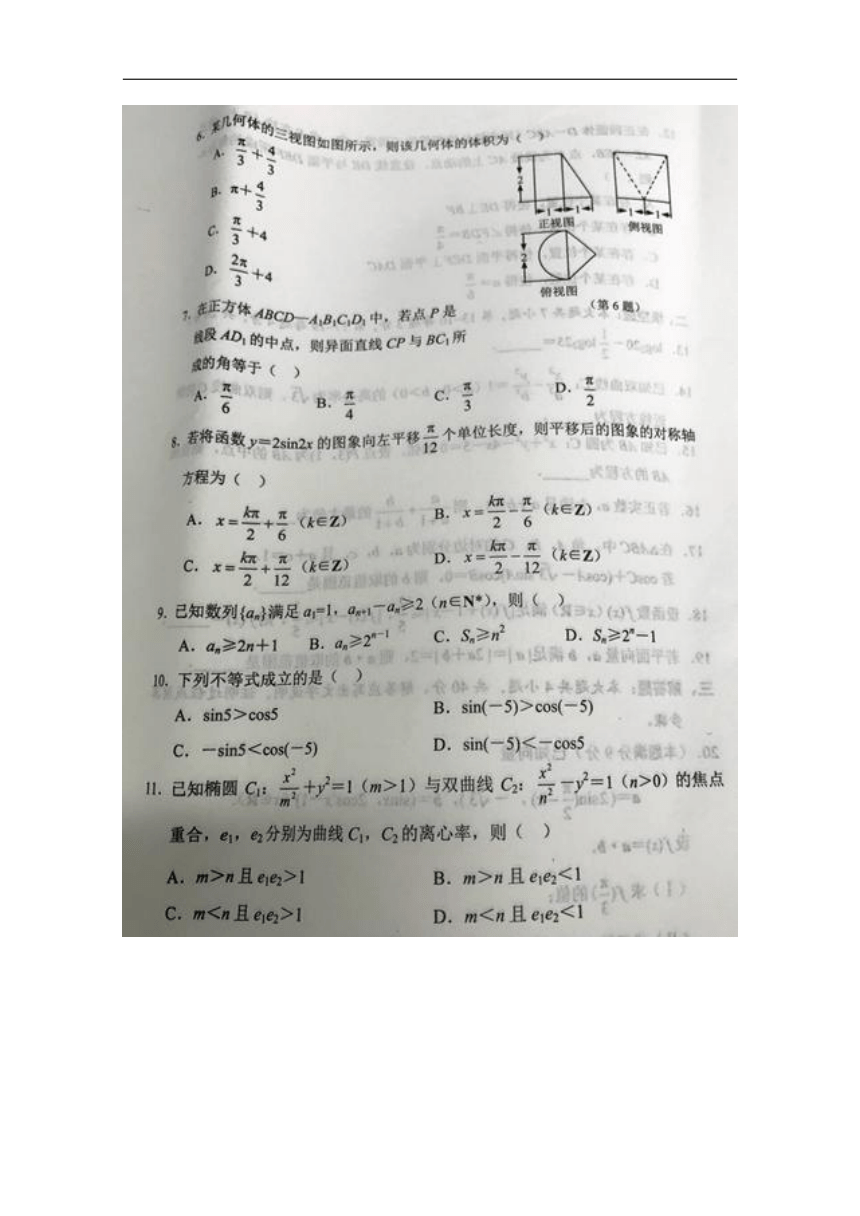 6. 某几何体的三视图如图所示，则该几何体的体积为（ ）
A. π/3+4/3
B. π+4/3
C. π/3+4
D. 2π/3+4
2
1 1
正视图
1 1
侧视图
2
俯视图
（第6题）
7. 在正方体ABCD—A₁B₁C₁D₁中，若点P是
线段AD₁的中点，则异面直线CP与BC₁所
成的角等于（ ）
A. π/6 B. π/4 C. π/3 D. π/2
8. 若将函数y=2sin2x的图象向左平移π/12个单位长度，则平移后的图象的对称轴
方程为（ ）
A. x=kπ/2+π/6（k∈Z） B. x=kπ/2-π/6（k∈Z）
C. x=kπ/2+π/12（k∈Z） D. x=kπ/2-π/12（k∈Z）
9. 已知数列{aₙ}满足a₁=1，aₙ₊₁-aₙ≥2（n∈N*），则（ ）
A. aₙ≥2n+1 B. aₙ≥2ⁿ⁻¹ C. Sₙ≥n² D. Sₙ≥2ⁿ-1
10. 下列不等式成立的是（ ）
A. sin5>cos5 B. sin(-5)>cos(-5)
C. -sin5<cos(-5) D. sin(-5)<-cos5
11. 已知椭圆C₁：x²/m²+y²=1（m>1）与双曲线C₂：x²/n²-y²=1（n>0）的焦点
重合，e₁，e₂分别为曲线C₁，C₂的离心率，则（ ）
A. m>n且e₁e₂>1 B. m>n且e₁e₂<1
C. m<n且e₁e₂>1 D. m<n且e₁e₂<1